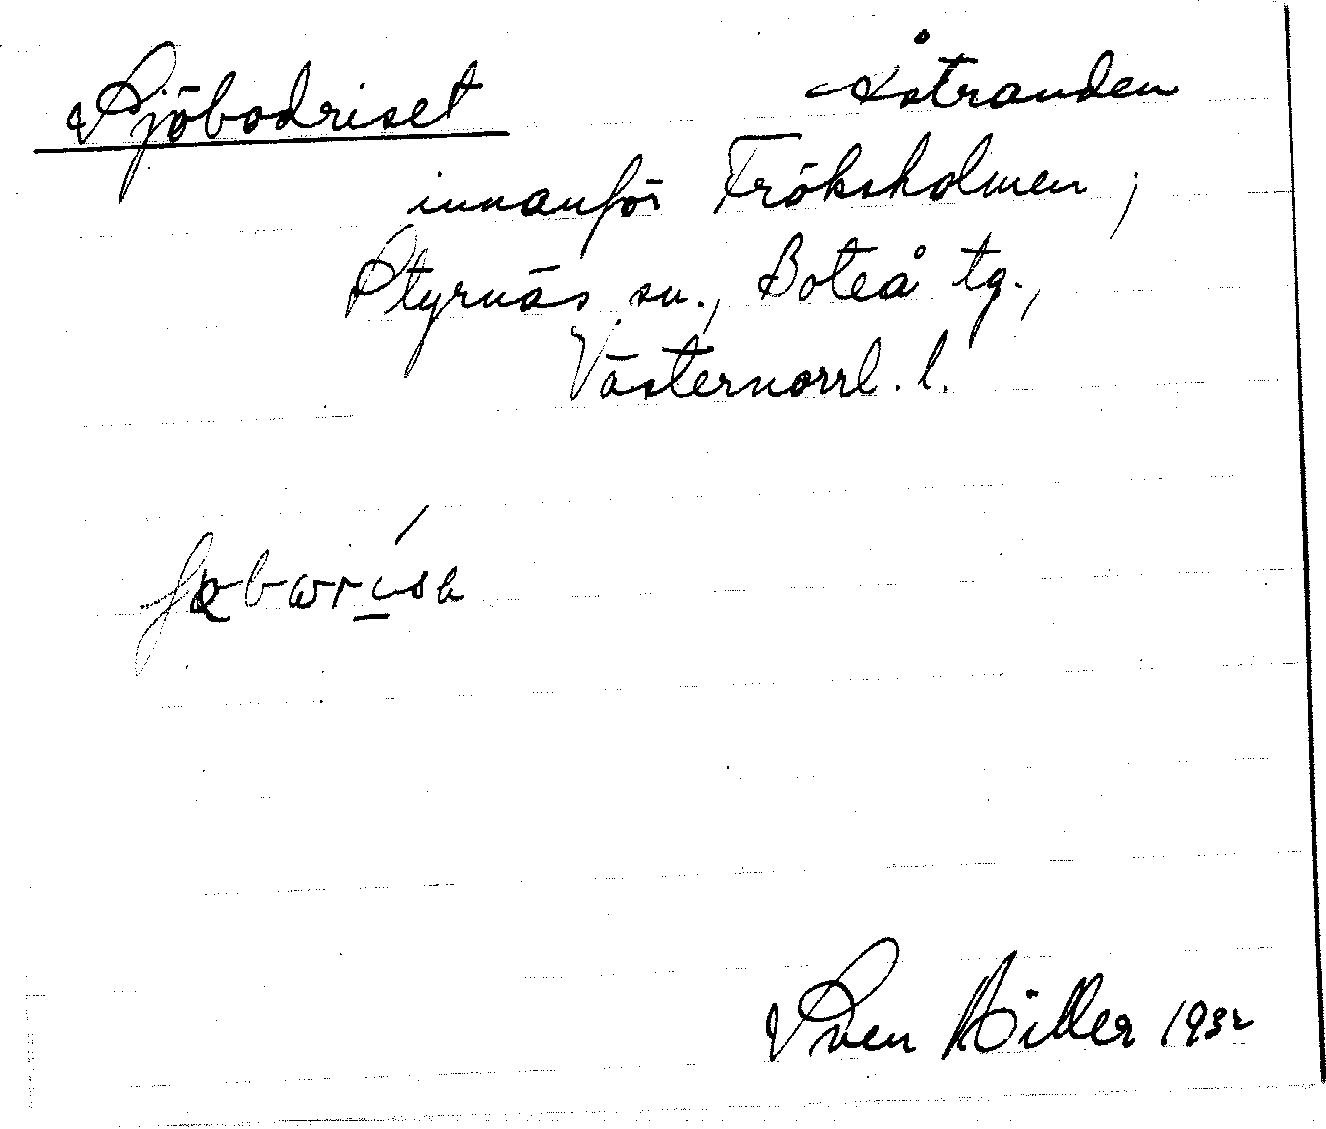 Sjöbodriset Åstranden
innanför Fröksholmen,
Styrnäs sn., Boteå tg.,
Västernorrl. l.
Sven Hiller 1932